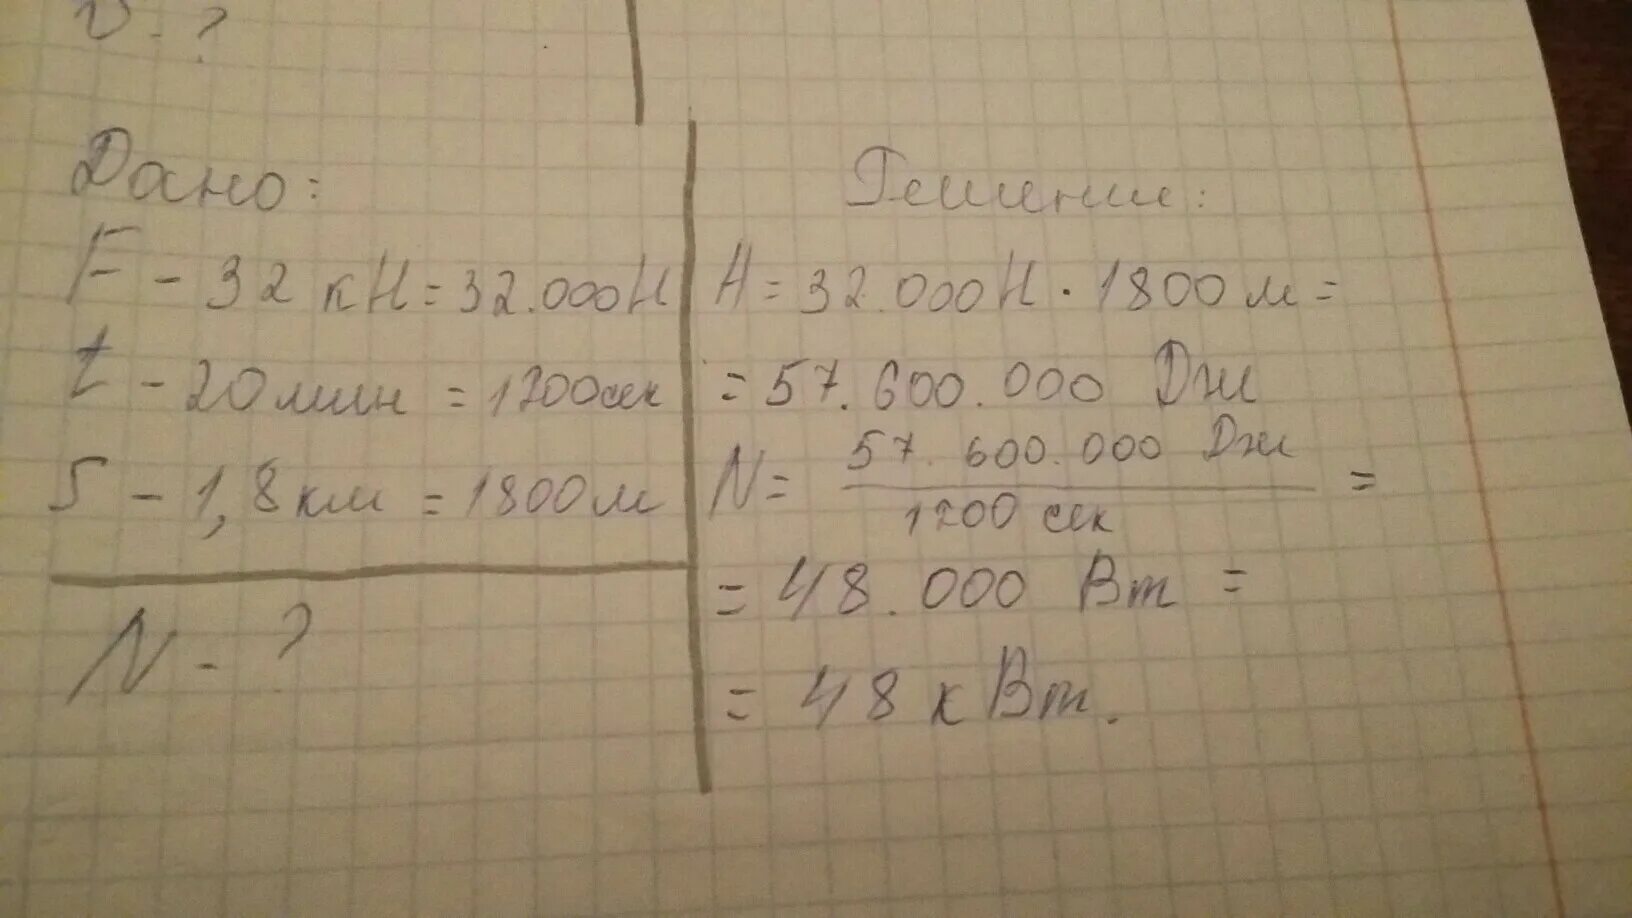 υ - ?
Дано:
F - 32 кН = 32.000Н
t - 20 мин = 1200сек
S - 1,8 км = 1800м
N - ?
Решение:
А = 32.000Н · 1800 м =
= 57.600.000 Дж
N = 57.600.000 Дж
1200 сек
=
= 48.000 Вт =
= 48 кВт.